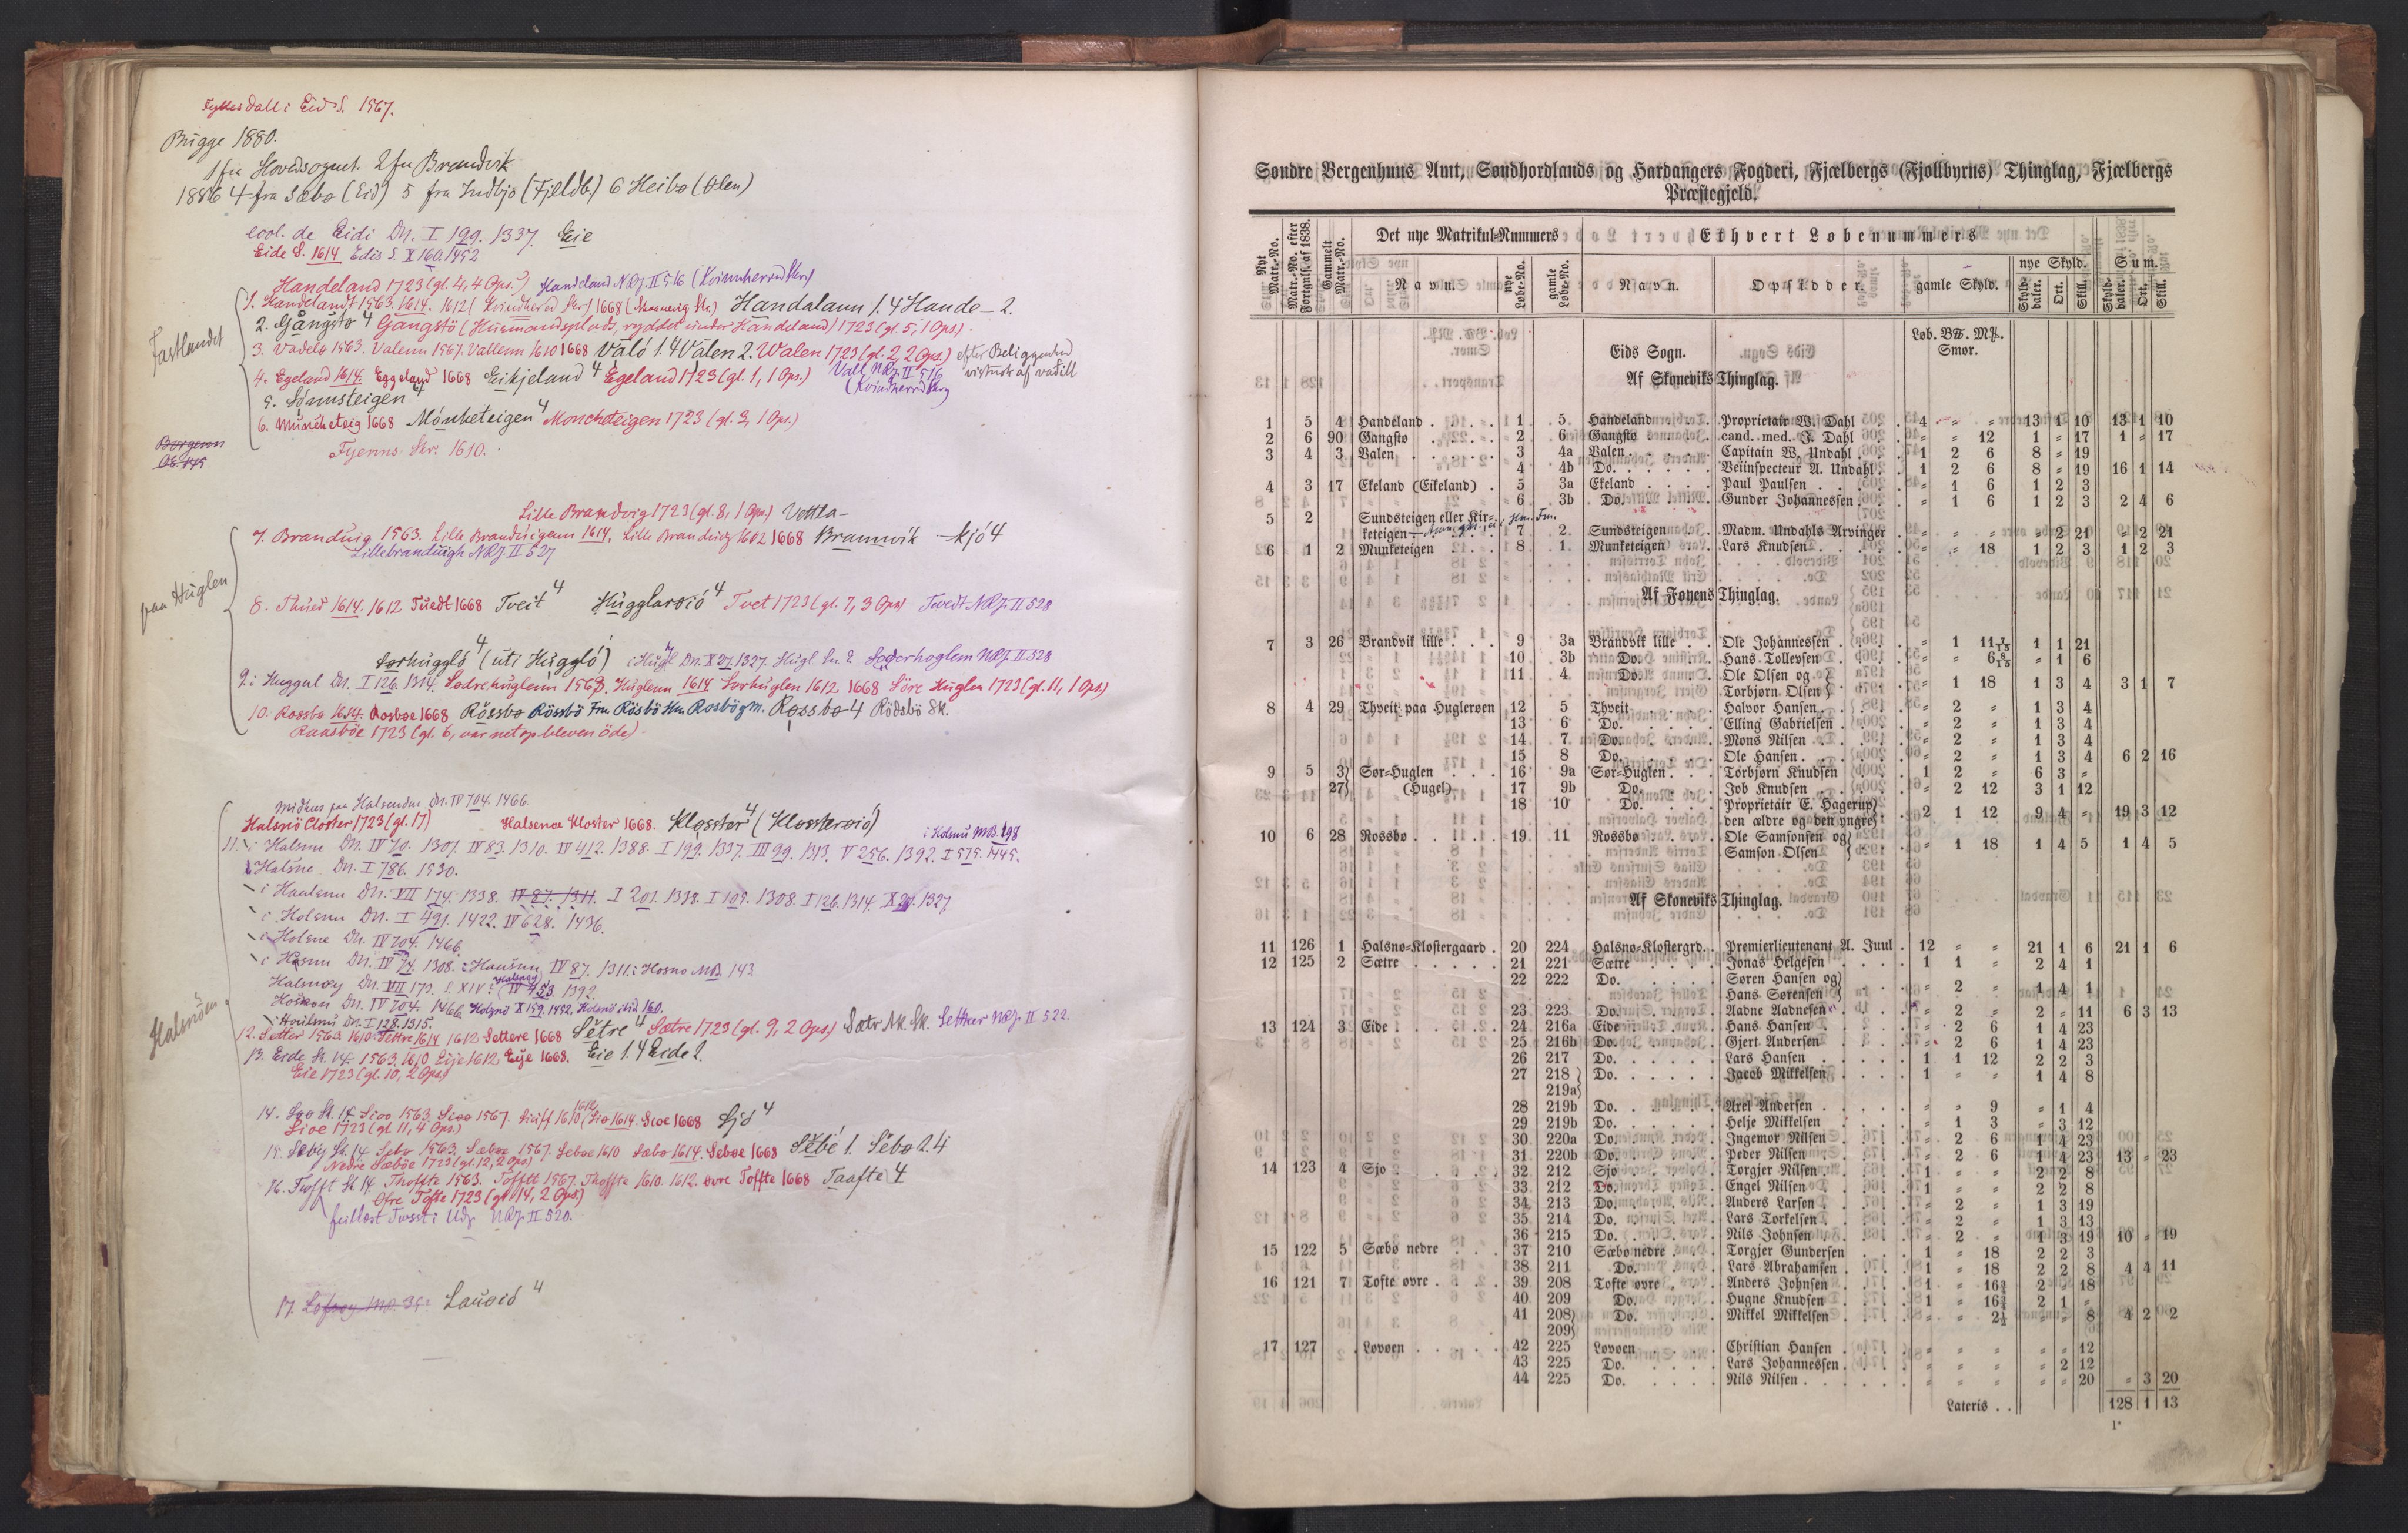 Fyllesdall i Eid S. 1567.
Brugge 1880.
1 fra Hovedsognet. 2 fra Brandvik
1886 4 fra Sæbø (Eid) 5 fra Indbjo (Fjeldb.) 6 Heibo (Ølen)
eccl. de Eidi Dn. I 199. 1337. Eie
Eide S. 1614 Edis S. X 160. 1492
Handeland 1723 (gl. 4, 4 Ops.) Handeland NRJ. II 516 (Kvinnherred Skr.)
1. Handelandt 1563. 1614. 1612 (Kvindhered Skr.) 1668 (Skonevig Skr.) Handalann 1. 4 Hande- 2.
2. Gångstø 4 Gangstö (Husmandsplads, ryddet under Handeland) 1723 (gl. 5, 1 Ops.).
3. Vadelø 1563. Valenn 1567. Vallenn 1610 1668 Våló 1. 4 Valen 2. Walen 1723 (gl. 2, 2 Ops.) efter Beliggenhed
4. Egeland 1614. Eggeland 1668 Eikjeland 4 Egeland 1723 (gl. 1, 1 Ops.) Vall NRJ. II 516
(Kvindherred Skrg
5. Sónnsteigen 4
6. Muncketeig 1668 Mónketeigen 4 Moncheteigen 1723 (gl. 3, 1 Ops.)
Fastlandet
Fyenns Skr. 1610.
Lille Brandvig 1723 (gl. 8, 1 Ops.) Vettla-
7. Branduig 1563. Lille Branduigenn 1614. Lille Branduig 1602 1668 Brannvik -kjó 4
Lillebranduigh NRJ. II 527
paa Huglen
8. Thued 1614. 1612 Tuedt 1668 Tveit 4 Hugglaroió 4 Tvet 1723 (gl. 7, 3 Ops) Tvedt NRJ. II 528
Sørhuggló 4 (uti Huggló) i Hugl Dn. X 27. 1327. Hugl. Sn. 2 Søderhoglem NRJ. II 528
9. i Huggul Dn. I 126. 1314. Sødrehuglenn 1563. Huglenn 1614 Sørhuglen 1612 1668 Söre Huglen 1723 (gl. 11, 1 Ops.)
10. Rossbø 1614. Rosboe 1668 Róssbø Rössbö Fm. Rösbö Hm. Rosbögm. Rossbø 4 Rödsbö Sk.
Raasböe 1723 (gl. 6, var netop bleven öde).
Midhus paa Halsendøe Dn. IV 704. 1466.
Halsnö Closter 1723 (gl. 17) Halsenoe Kloster 1668. Klosster 4 (Klossteroió)
11. i Halsnu Dn. IV 70. 1307. IV 83. 1310. IV 412. 1388. I 199. 1337. III 99. 1313. V 256. 1392. I 575. 1445.
Halsne Dn. I 786. 1530.
i Haulsnu Dn. VII 174. 1338. IV 87. 1311. I 201. 1328. I 109. 1308. I 126. 1314. X 27. 1327
i Holsnu Dn. I 491. 1422. IV 628. 1436.
i Holsne Dn. IV 704. 1466.
i Hasnu Dn. IV 74. 1308. i Hausnu IV 87. 1311. i Hosno MB. 143
Halsnoy Dn. VII 173. S. XIV. IV 453. 1392.
Halsnöen
i Houlsnu Dn. I 128. 1315.
12. Setter 1563. 1610. Settre 1614 1612 Settere 1668 Sètre 4 Sætre 1723 (gl. 9, 2 Ops.) Sætr Ak. Sk. Settær NRJ. II 522.
13. Eide St. 14f. 1563. 1610 Eije 1612 Eije 1668. Eie 1. 4 Eide 2.
Eie 1723 (gl. 10, 2 Ops.)
Sioe 1668 Sjó 4
Sioe 1723 (gl. 11, 4 Ops.)
15. Sæby St. 14 Sebø 1563. Sæboe 1567. Seboe 1610 Sæbø 1614. Seboe 1668 Sèbé 1. Sèbø 2. 4
Nedre Sæböe 1723 (gl. 12, 2 Ops)
16. Thofft St. 14. Thoffte 1563. Tofftt 1567. Thoffte 1610. 1612. øvre Toffte 1668 Taafte 4
Øfre Tofte 1723 (gl. 14, 2 Ops.)
NRJ. II 520.
17. Lauoió 4
Søndre Bergenhuus Amt, Søndhordlands og Hardangers Fogderi, Fjælbergs (Fjollbyrns) Thinglag, Fjælbergs
Præstegjeld.
Nyt Matr.-No. Matr.-No. efter Forignlf. af 1838. Gammelt Matr.-No. Det nye Matrikul-Nummers Ethvert Løbenummers
Navn. nye Løbe-No. gamle Løbe-No. Navn. Opsidder. gamle Skyld. nye Skyld. Sum.
Skylddaler. Ort. Skill. Skylddaler. Ort. Skill.
Løb. B℔. Mƒ.
Smør.
Eids Sogn.
Af Skoneviks Thinglag.
1 5 4 Handeland 1 5 Handeland Proprietair W. Dahl 4 " " 13 1 10 13 1 10
2 6 90 Gangstø 2 6 Gangstø cand. med. J. Dahl " " 12 1 " 17 1 " 17
3 4 3 Valen 3 4a Valen Capitain W. Undahl 1 2 6 8 " 19
4 4b Do. Veiinspecteur A. Undahl 1 2 6 8 " 19 16 1 14
4 3 17 Ekeland (Eikeland) 5 3a Ekeland Paul Paulsen " 1 6 1 2 3
6 3b Do. Gunder Johannessen " 1 6 1 2 3 2 4 6
5 2 Sundsteigen eller Kir-
keteigen 7 2 Sundsteigen Madm. Undahls Arvinger " " " " 2 21 " 2 21
6 1 2 Munketeigen 8 1 Munketeigen Lars Knudsen " " 18 1 2 3 1 2 3
Af Føyens Thinglag.
7 3 26 Brandvik lille 9 3a Brandvik lille Ole Johannessen " 1 11 7/15 1 1 21
10 3b Do. Hans Tollevsen " " 6 8/15 " 1 6
11 4 Do. Ole Olsen og
Torbjørn Olsen " 1 18 1 3 4 3 1 7
8 4 29 Thveit paa Huglerøen 12 5 Thveit Halvor Hansen " 2 " 1 3 4
13 6 Do. Elling Gabrielsen " 2 " 1 3 4
14 7 Do. Mons Nilsen " 2 " 1 3 4
15 8 Do. Ole Hansen " 2 " 1 3 4 6 2 16
9 5 3 Sør-Huglen 16 9a Sør-Huglen Torbjørn Knudsen 1 2 " 6 3 "
27 (Hugel) 17 9b Do. Job Knudsen " 2 12 3 1 12
18 10 Do. Proprietair E. Hagerup,
den ældre og den yngre 2 1 12 9 4 " 19 3 12
10 6 28 Rossbø 19 11 Rossbø Ole Samsonsen og
Samson Olsen " 1 18 1 4 5 1 4 5
Af Skoneviks Thinglag.
11 126 1 Halsnø-Klostergaard 20 224 Halsnø-Klostergrd. Premierlieutenant A. Juul 12 " " 21 1 6 21 1 6
12 125 2 Sætre 21 221 Sætre Jonas Helgesen 1 1 " 2 4 1
22 222 Do. Søren Hansen og
Hans Sørensen " 2 " 1 4 1
23 223 Do. Aadne Aadnesen " 2 " 2 " 11 6 3 13
13 124 3 Eide 24 216a Eide Hans Hansen " 2 6 1 4 23
25 216b Do. Gjert Andersen " 2 6 1 4 23
26 217 Do. Lars Hansen 1 1 12 2 2 3
27 218 Do. Jacob Mikkelsen 1 " " 1 4 8
219a
28 219b Do. Arel Andersen " " 9 " 1 4
29 219b Do. Helje Mikkelsen " 1 3 " 3 12
30 220a Do. Ingemor Nilsen " 2 6 1 4 23
31 220b Do. Peder Nilsen " 2 6 1 4 23 13 " 23
14 123 4 Sjo 32 212 Sjo Torgjer Nilsen 1 " " 2 2 8
33 212 Do. Engel Nilsen 1 " " 2 2 8
34 213 Do. Anders Larsen " 2 " 1 3 19
35 214 Do. Lars Torkelsen " 2 " 1 3 13
36 215 Do. Nils Johnsen " 2 " 1 3 19 10 " 19
15 122 5 Sæbø nedre 37 210 Sæbø nedre Torgjer Gundersen 1 " 18 2 2 3
38 211 Do. Lars Abrahamsen 1 " 18 2 2 8 4 4 11
16 121 7 Tofte øvre 39 208 Tofte øvre Anders Johnsen 1 " 16¾ 2 " 18
40 209 Do. Hugne Knudsen 1 " 16¾ 2 1 "
41 208 Do. Mikkel Mikkelsen " " 2½ " " 8 4 2 2
209
17 127 Lovøen 42 225 Lovøen Christian Hansen " " " " " 12
43 225 Do. Lars Johannessen " " " " 2 12
44 225 Do. Nils Nilsen " " " " " 20 " 3 20
Lateris 128 1 13
1*